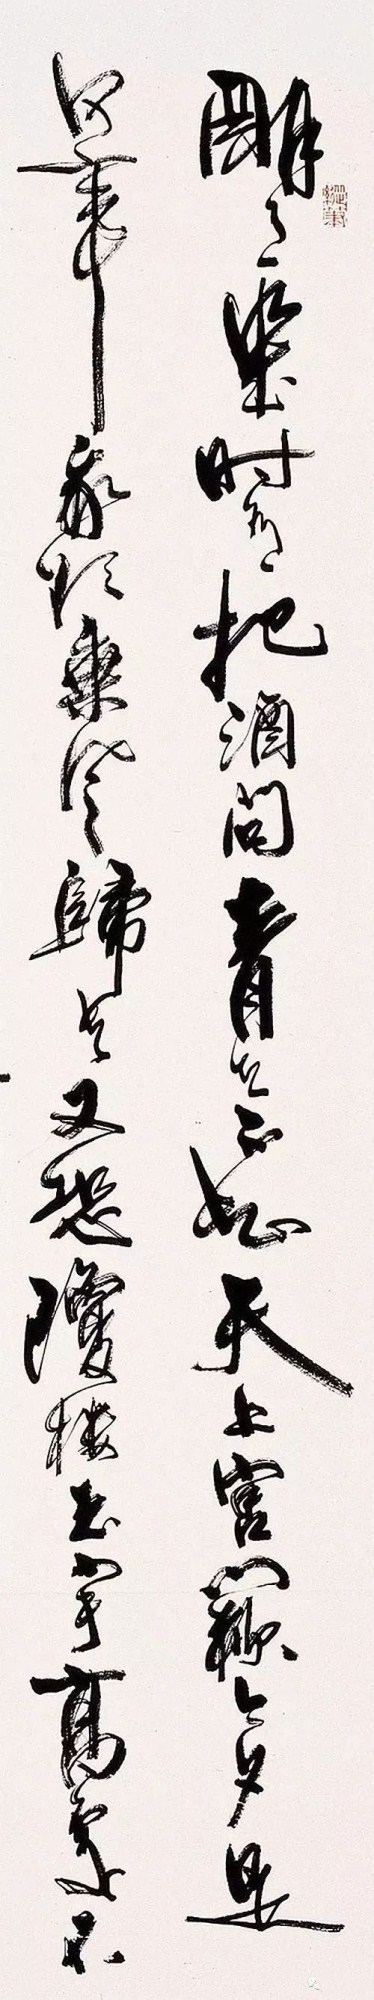 明月几時有把酒問青天不知天上宮闕今夕是
何年我欲乘風歸去又恐瓊樓玉宇高處不